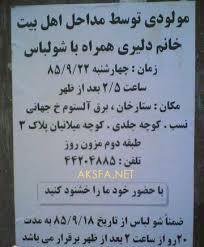 مولودی توسط مداحل اهل بیت
خانم دلیری همراه با شولباس
زمان : چهارشنبه ۸۵/۹/۲۲
ساعت ۲/۵ بعد از ظهر
مکان : ستارخان ، برق آلستوم خ جهانی
نسب . کوچه جلدی . کوچه میلانیان پلاک ۳
طبقه دوم مزون روز
تلفن : ۴۴۲۰۴۸۸۵
AKSFA.NET
با حضور خود ما را خشنود کنید
ضمناً شو لباس از تاریخ ۸۵/۹/۱۸ به مدت
۲۰ روز از ساعت ۲ بعد از ظهر برقرار می باشد